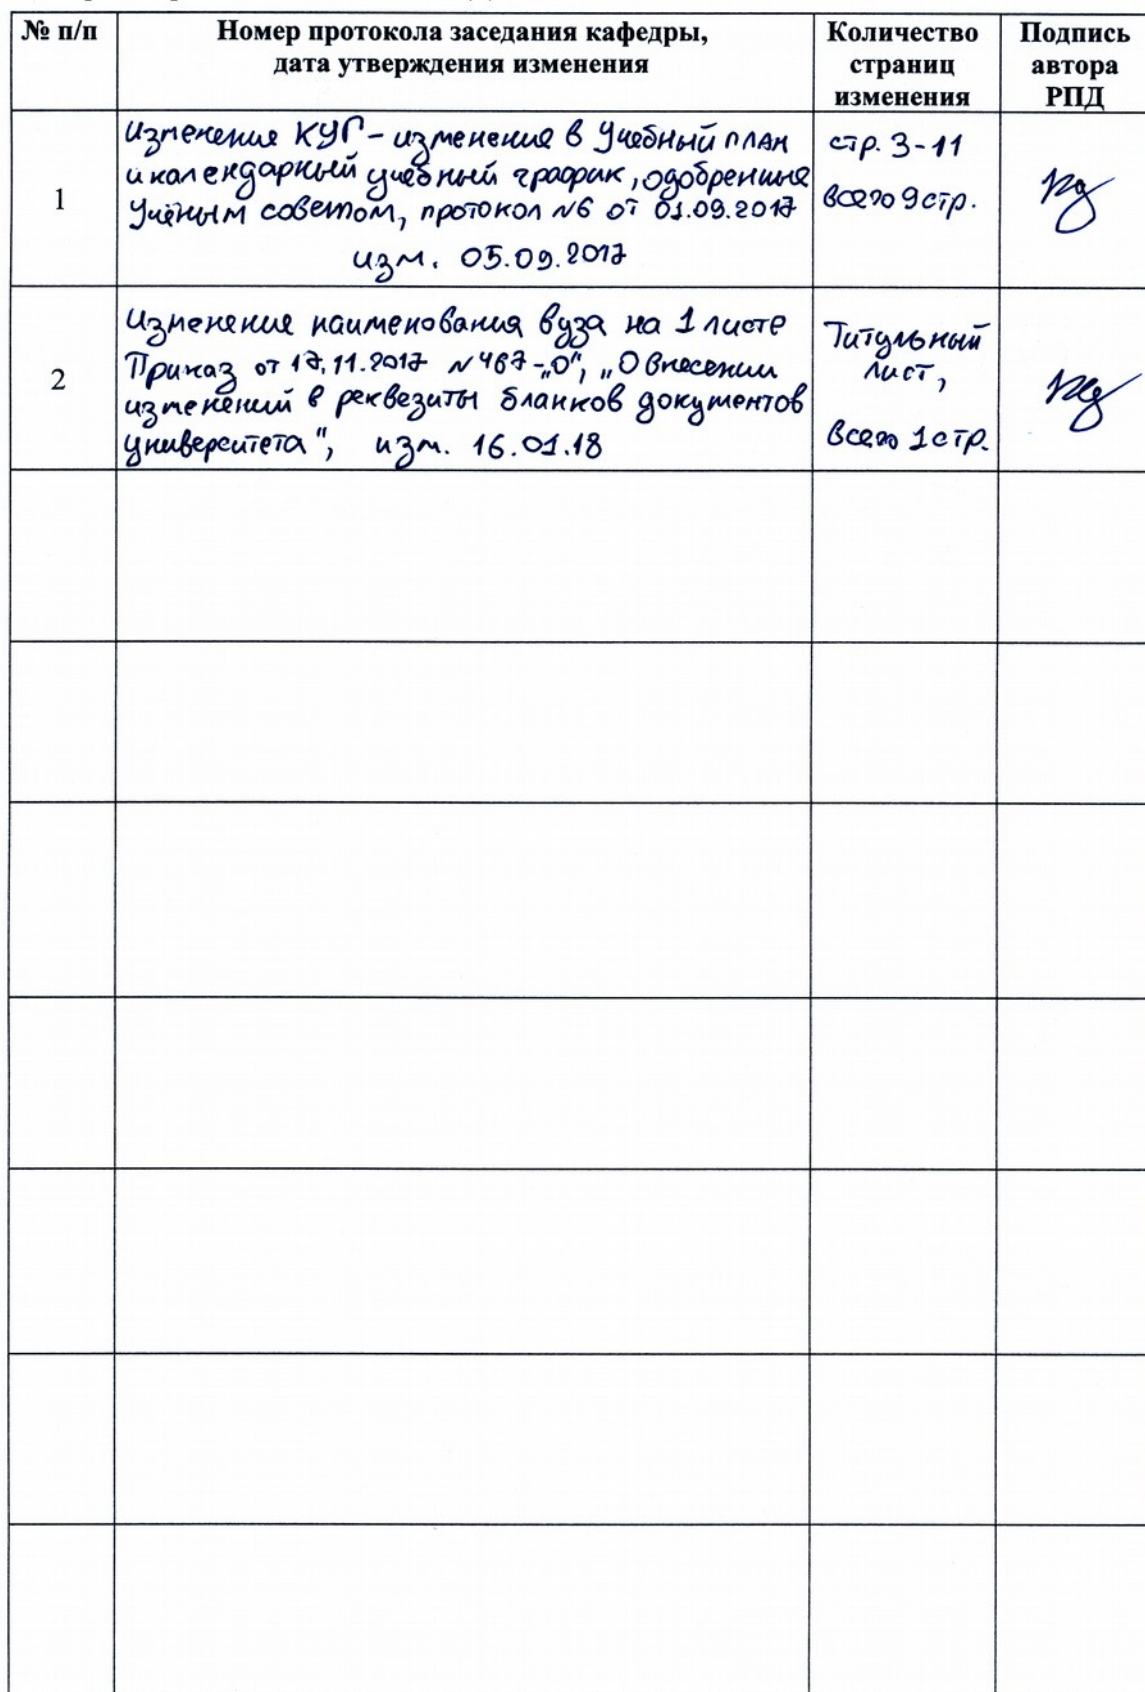 № п/п
Номер протокола заседания кафедры,
дата утверждения изменения
Количество
страниц
изменения
Подпись
автора
РПД
1
Изменения КУГ - изменения в Учебный план
и календарный учебный график, одобренные
Учёным советом, протокол №6 от 01.09.2017
изм. 05.09.2017
стр. 3-11
всего 9 стр.
2
Изменения наименования вуза на 1 листе
Приказ от 17.11.2017 №467-„О“, „О внесении
изменений в реквезиты бланков документов
университета", изм. 16.01.18
Титульный
лист,
всего 1 стр.